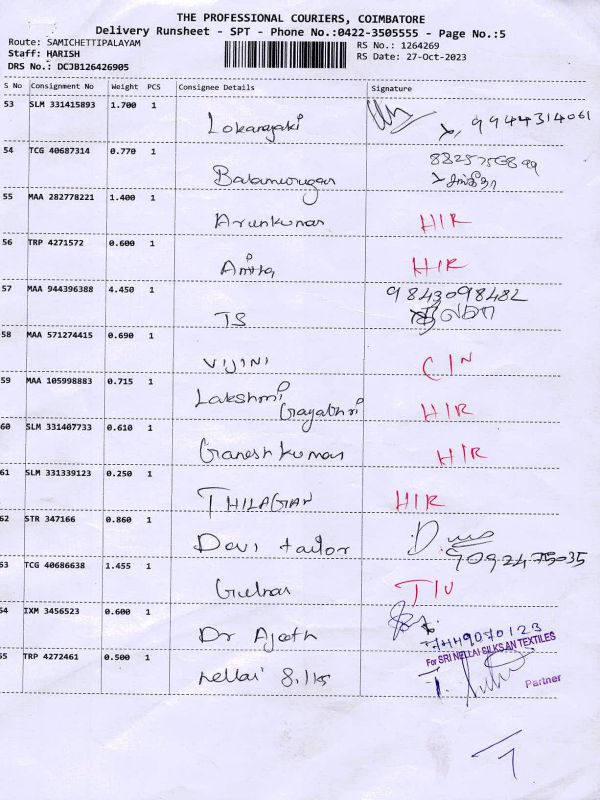 THE PROFESSIONAL COURIERS, COIMBATORE
Delivery Runsheet - SPT - Phone No.:0422-3505555 - Page No.:5
Route: SAMICHETTIPALAYAM RS No.: 1264269
Staff: HARISH RS Date: 27-Oct-2023
DRS No.: DCJB126426905
S No Consignment No Weight PCS Consignee Details Signature
53 SLM 331415893 1.700 1 9944314061
54 TCG 40687314 0.770 1 Balamurugan
55 MAA 282778221 1.400 1 Arunkumar HIR
56 TRP 4271572 0.600 1 HIR
57 MAA 944396388 4.450 1 TS 9843098482
58 MAA 571274415 0.690 1 VIJINI CIN
59 MAA 105998883 0.715 1 Lakshmi Gayathri HIR
60 SLM 331407733 0.610 1 Ganeshkumar HIR
61 SLM 331339123 0.250 1 HIR
62 STR 347166 0.860 1 Devi tailor
9092475035
63 TCG 40686638 1.455 1
64 IXM 3456523 0.600 1 Dr Ajeeth
For SRI NELLAI SILKS AN TEXTILES
65 TRP 4272461 0.500 1 nellai Silks
Partner